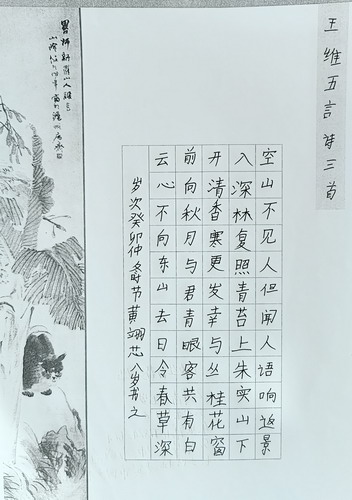 王维五言诗三首
空山不见人但闻人语响返景
入深林复照青苔上朱实山下
开清香寒更发幸与丛桂花窗
前向秋月与君青眼客共有白
云心不向东山去日令春草深
岁次癸卯仲时节黄翊芯八岁书之